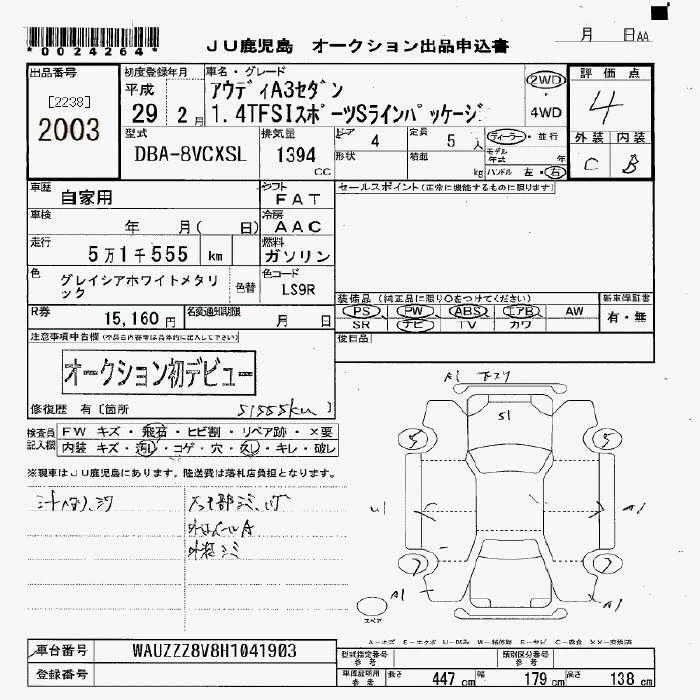 月 日AA
*0024264*
JU鹿児島 オークション出品申込書
出品番号
[2238]
2003
初度登録年月
平成
29 2月
車名・グレード
アウディA3セダン
1.4TFSIスポーツSラインパッケージ
2WD
4WD
評価点
4
外装 内装
C B
型式
DBA-8VCXSL
排気量
1394
CC
ドア 4
定員 5人
ディーラー・並行
形状
積載 kg
モデル年式 年
ハンドル 左・右
車歴 自家用
シフト FAT
車検 年 月( 日)
冷房 AAC
走行 5万1千555 km
燃料 ガソリン
色 グレイシアホワイトメタリ
ック
色替
色コード LS9R
R券 15,160円
名変通知期限 月 日
セールスポイント(正常に機能するものに限ります)
装備品(純正品に限り○をつけてください)
新車保証書
PS PW ABS エアB AW
SR ナビ TV カワ
有・無
後日品
注意事項申告欄(不具合内容等は具体的に記入して下さい)
オークション初デビュー
修復歴 有〔箇所 51555km 〕
検査員
記入欄
FW キズ・飛石・ヒビ割・リペア跡・×要
内装 キズ・汚レ・コゲ・穴・スレ・キレ・破レ
※現車はJU鹿児島にあります。陸送費は落札店負担となります。
A1 下スリ
S1
5 5
U1 A1
7 7
A1 A1
スペア
A-キズ E-エクボ U-凹み W-補修跡 S-サビ C-腐食 XX-交換済
車台番号 WAUZZZ8V8H1041903
登録番号
型式指定番号
参考
類別区分番号
参考
車検証明用
参考
長さ 447 cm 幅 179 cm 高さ 138 cm